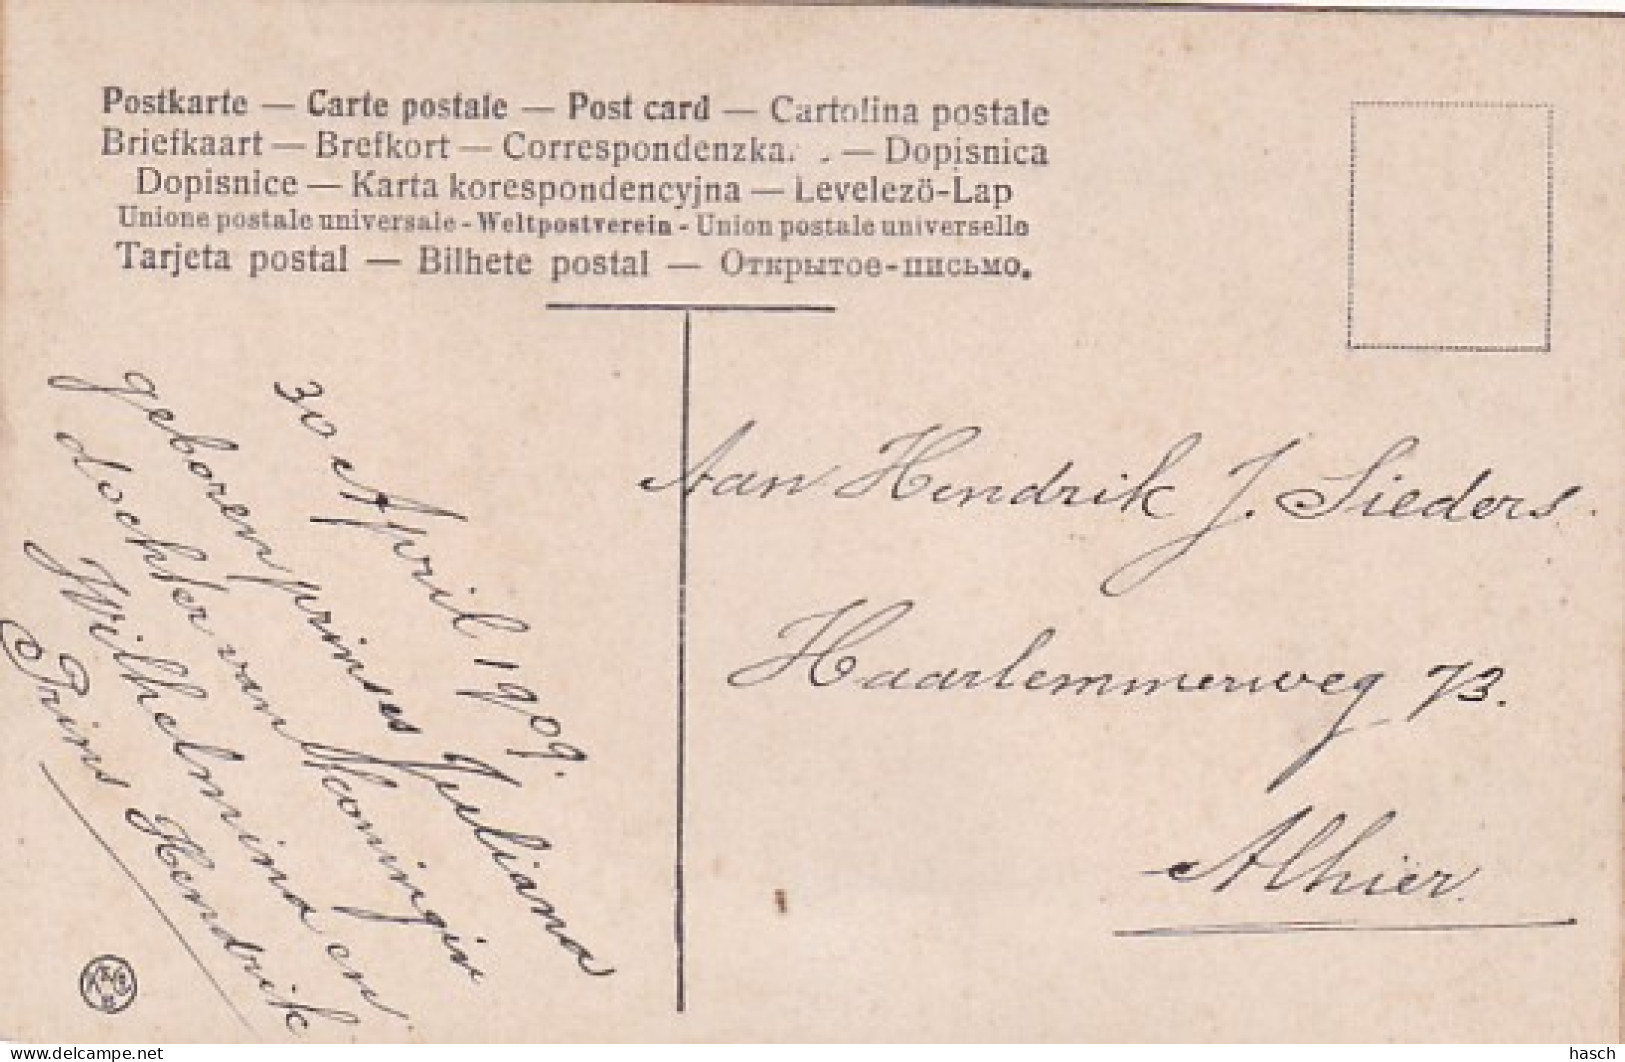 Postkarte — Carte postale — Post card — Cartolina postale
Briefkaart — Brefkort — Correspondenzka. . — Dopisnica
Dopisnice — Karta korespondencyjna — Levelezö-Lap
Unione postale universale - Weltpostverein - Union postale universelle
Tarjeta postal — Bilhete postal — Открытое-письмо.
30 April 1909.
geboren prinses Juliana
dochter van Koningin
Wilhelmina en
Prins Hendrik
Aan Hendrik J. Sieders.
Haarlemmerweg 73.
Alhier.
delcampe.net
hasch